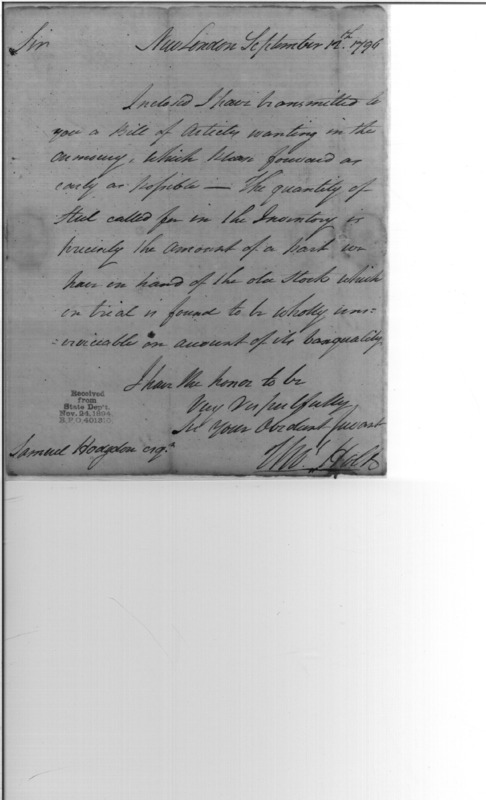 Sir
New London September 12th. 1796
Inclosed I have transmitted to
you a Bill of Articles wanting in the
armoury, which please forward as
early as possible — The quantity of
Steel called for in the Inventory is
precisely the amount of a part we
have on hand of the old stock which
on trial is found to be wholly uns=
=erviceable on account of its bad quality
I have the honor to be
Very respectfully
Sir Your Obedient Servant
Samuel Hodgdon esqr.
Received
from
State Dep't.
Nov. 24, 1894.
R.P.O. 401310.